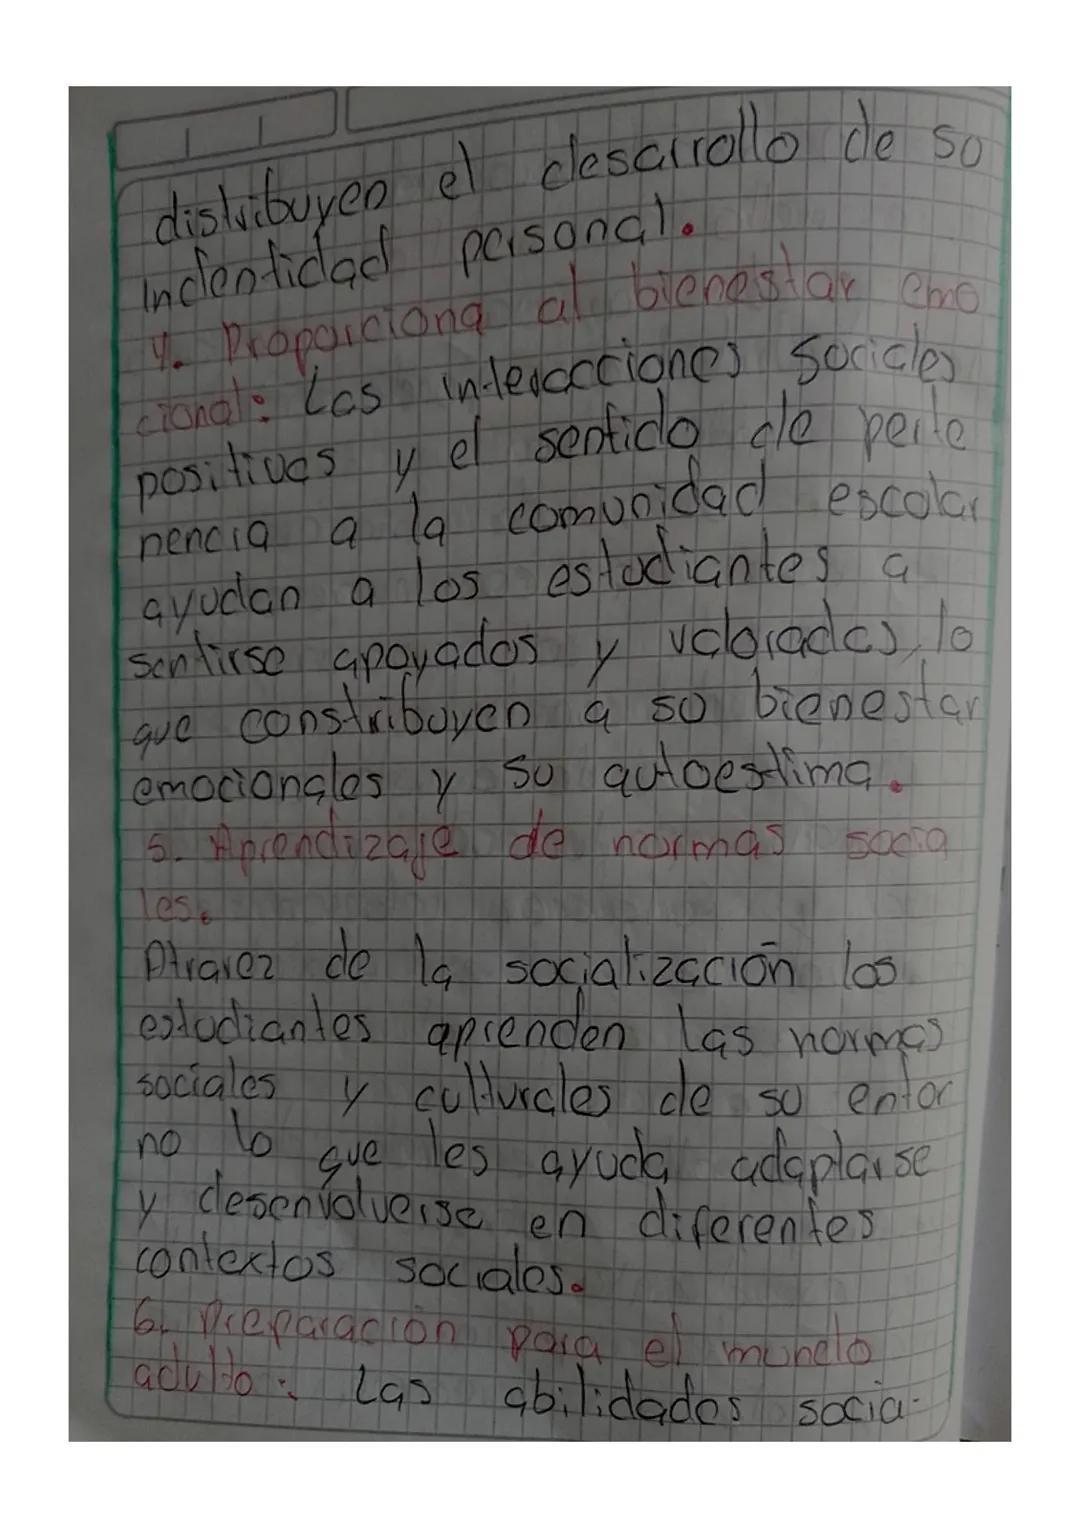 distribuyen el desarrollo de su
indentidad personal.
4. Proporciona al bienestar emo
cional: Las interacciones sociales
positivas y el sentido de perte
nencia a la comunidad escolar
ayudan a los estudiantes a
sentirse apoyados y valorados, lo
que constribuyen a su bienestar
emocionales y su autoestima.
5. Aprendizaje de normas socia
les.
Atravez de la socialización los
estudiantes aprenden las normas
sociales y culturales de su entor
no lo que les ayuda adaptarse
y desenvolverse en diferentes
contextos sociales.
6. Preparación para el mundo
adulto: Las abilidades socia-